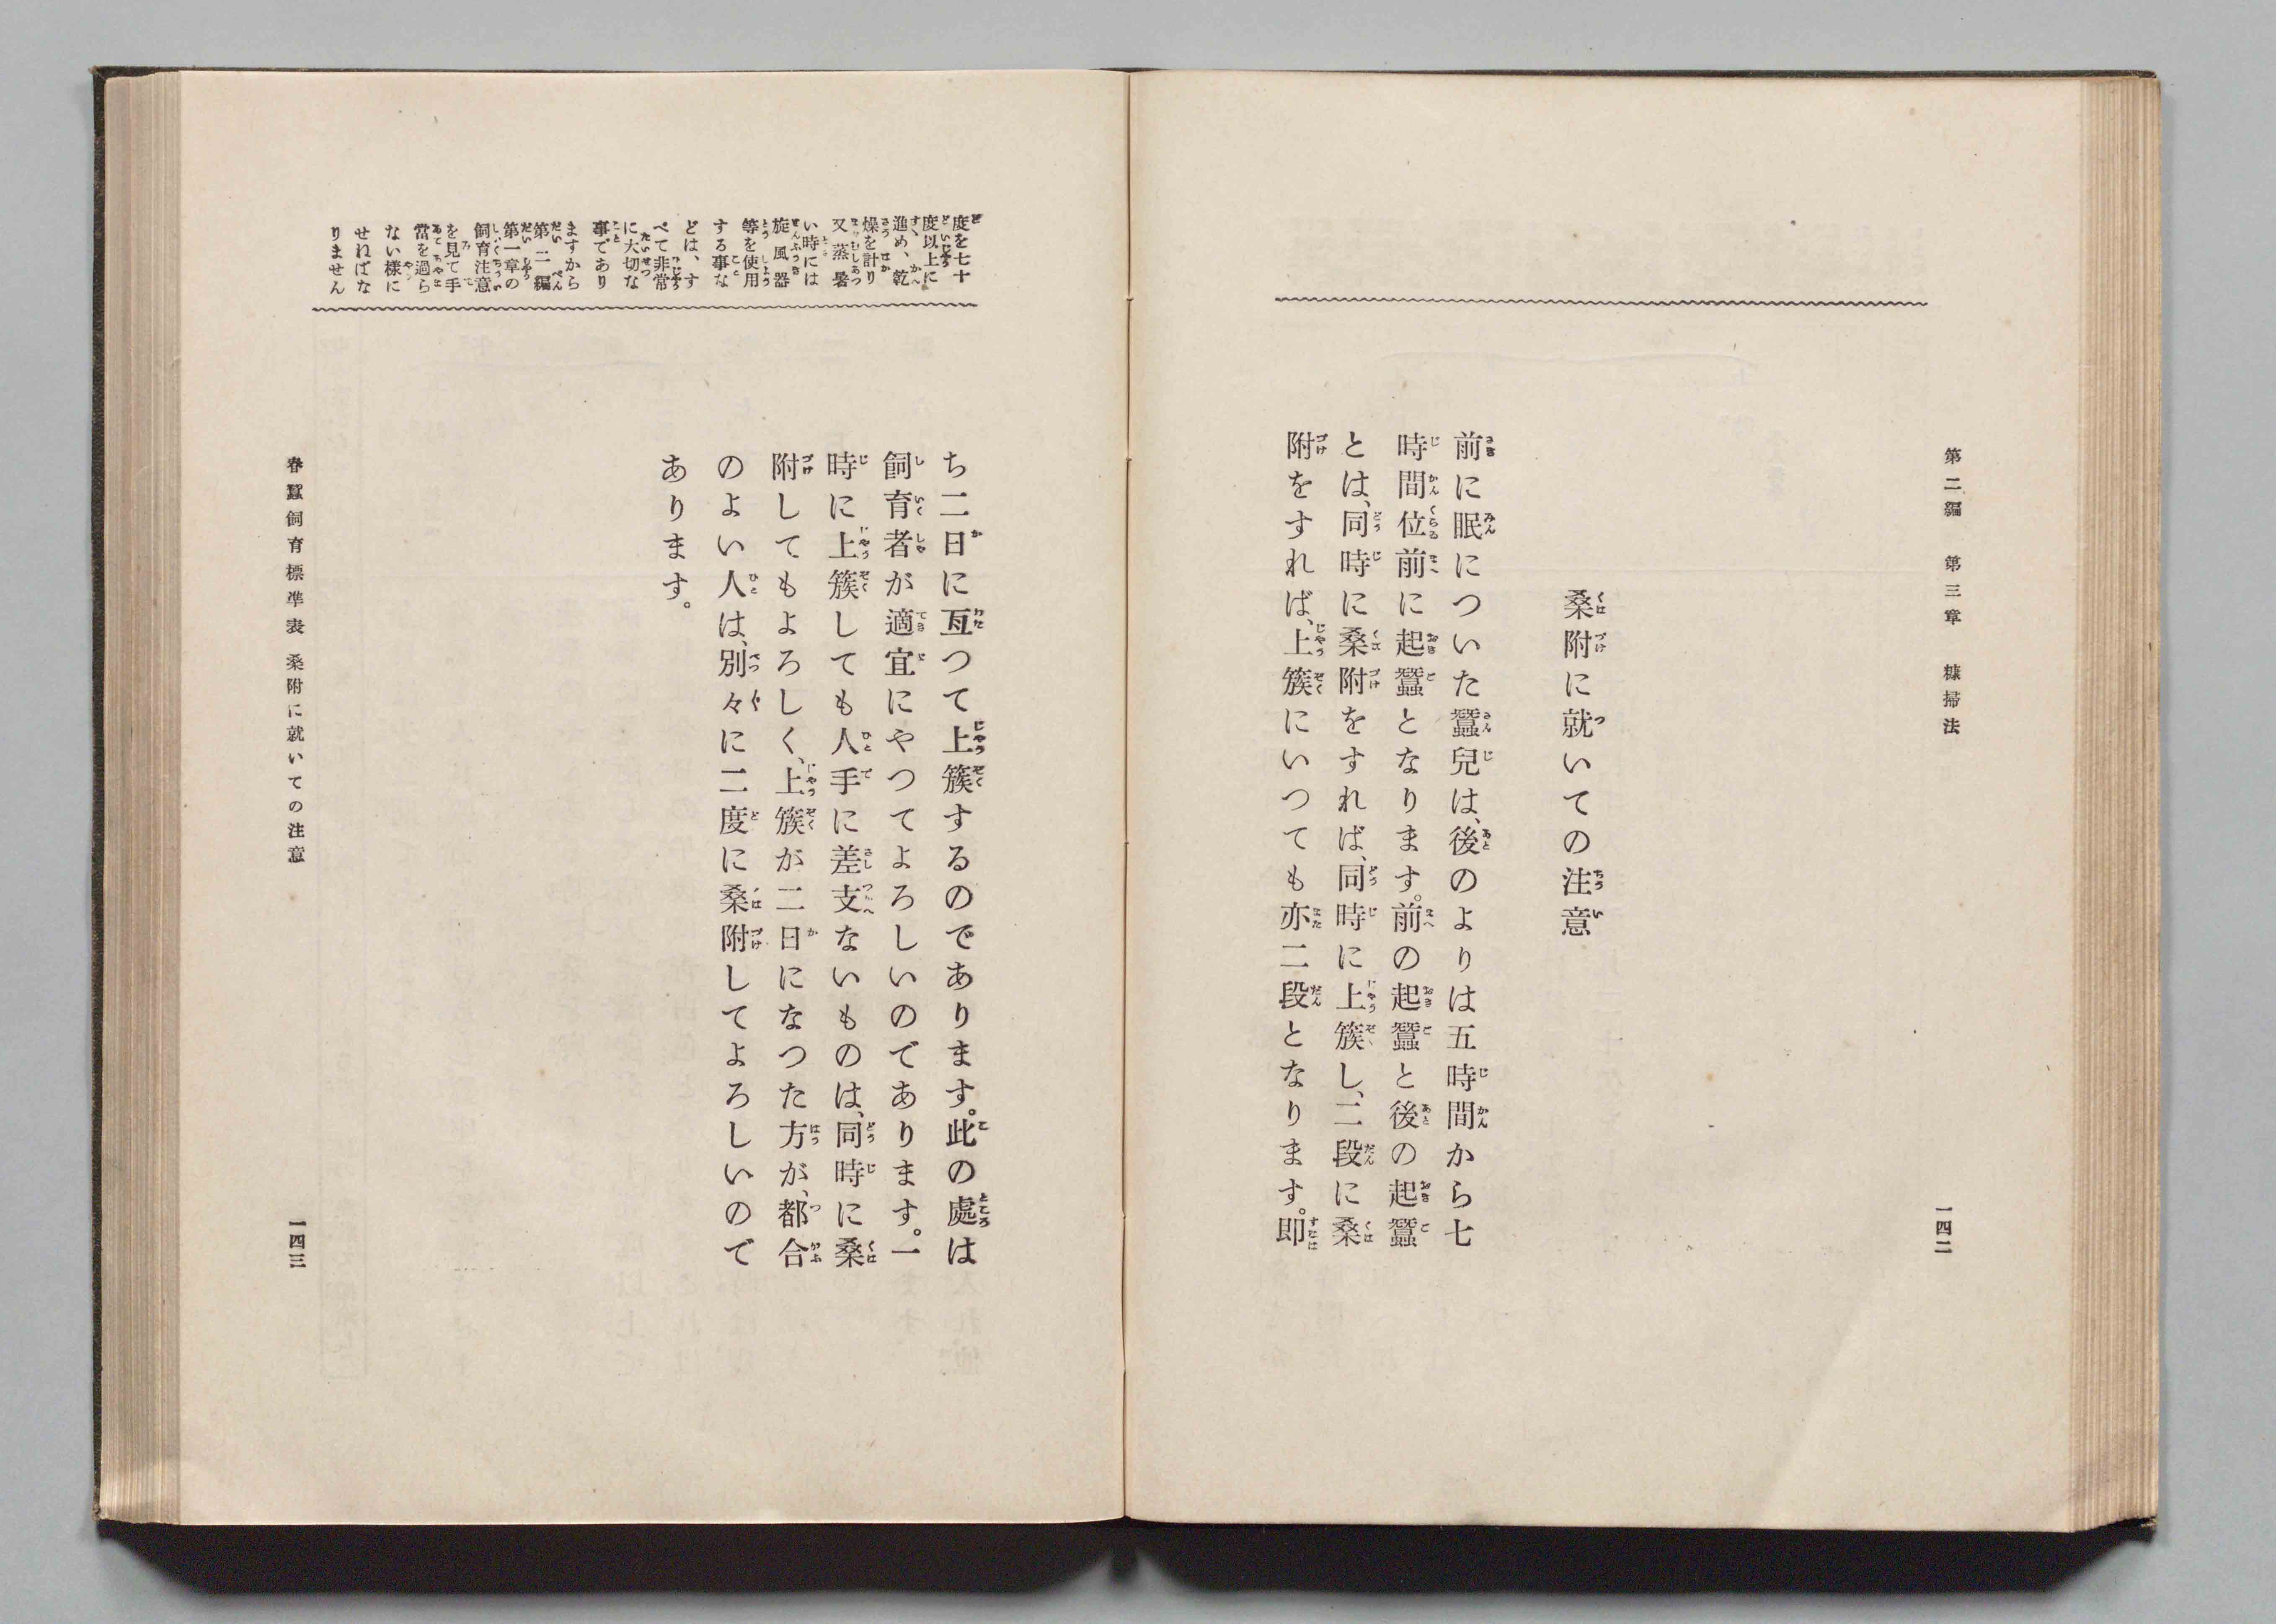 第二編　第三章　糠掃法
桑附に就いての注意
前に眠についた蠶兒は、後のよりは五時間から七
時間位前に起蠶となります。前の起蠶と後の起蠶
とは、同時に桑附をすれば、同時に上簇し、二段に桑
附をすれば、上簇にいつても亦二段となります。即
一四二
度を七十
度以上に
進め、乾
燥を計り
又蒸暑
い時には
旋風器
等を使用
する事な
どは、す
べて非常
に大切な
事であり
ますから
第二編
第一章の
飼育注意
を見て手
當を過ら
ない樣に
せねばな
りません
ち二日に亙つて上簇するのであります。此の處は
飼育者が適宜にやつてよろしいのであります。一
時に上簇しても人手に差支ないものは、同時に桑
附してもよろしく、上簇が二日になつた方が、都合
のよい人は、別々に二度に桑附してよろしいので
あります。
春蠶飼育標準表　桑附に就いての注意
一四三